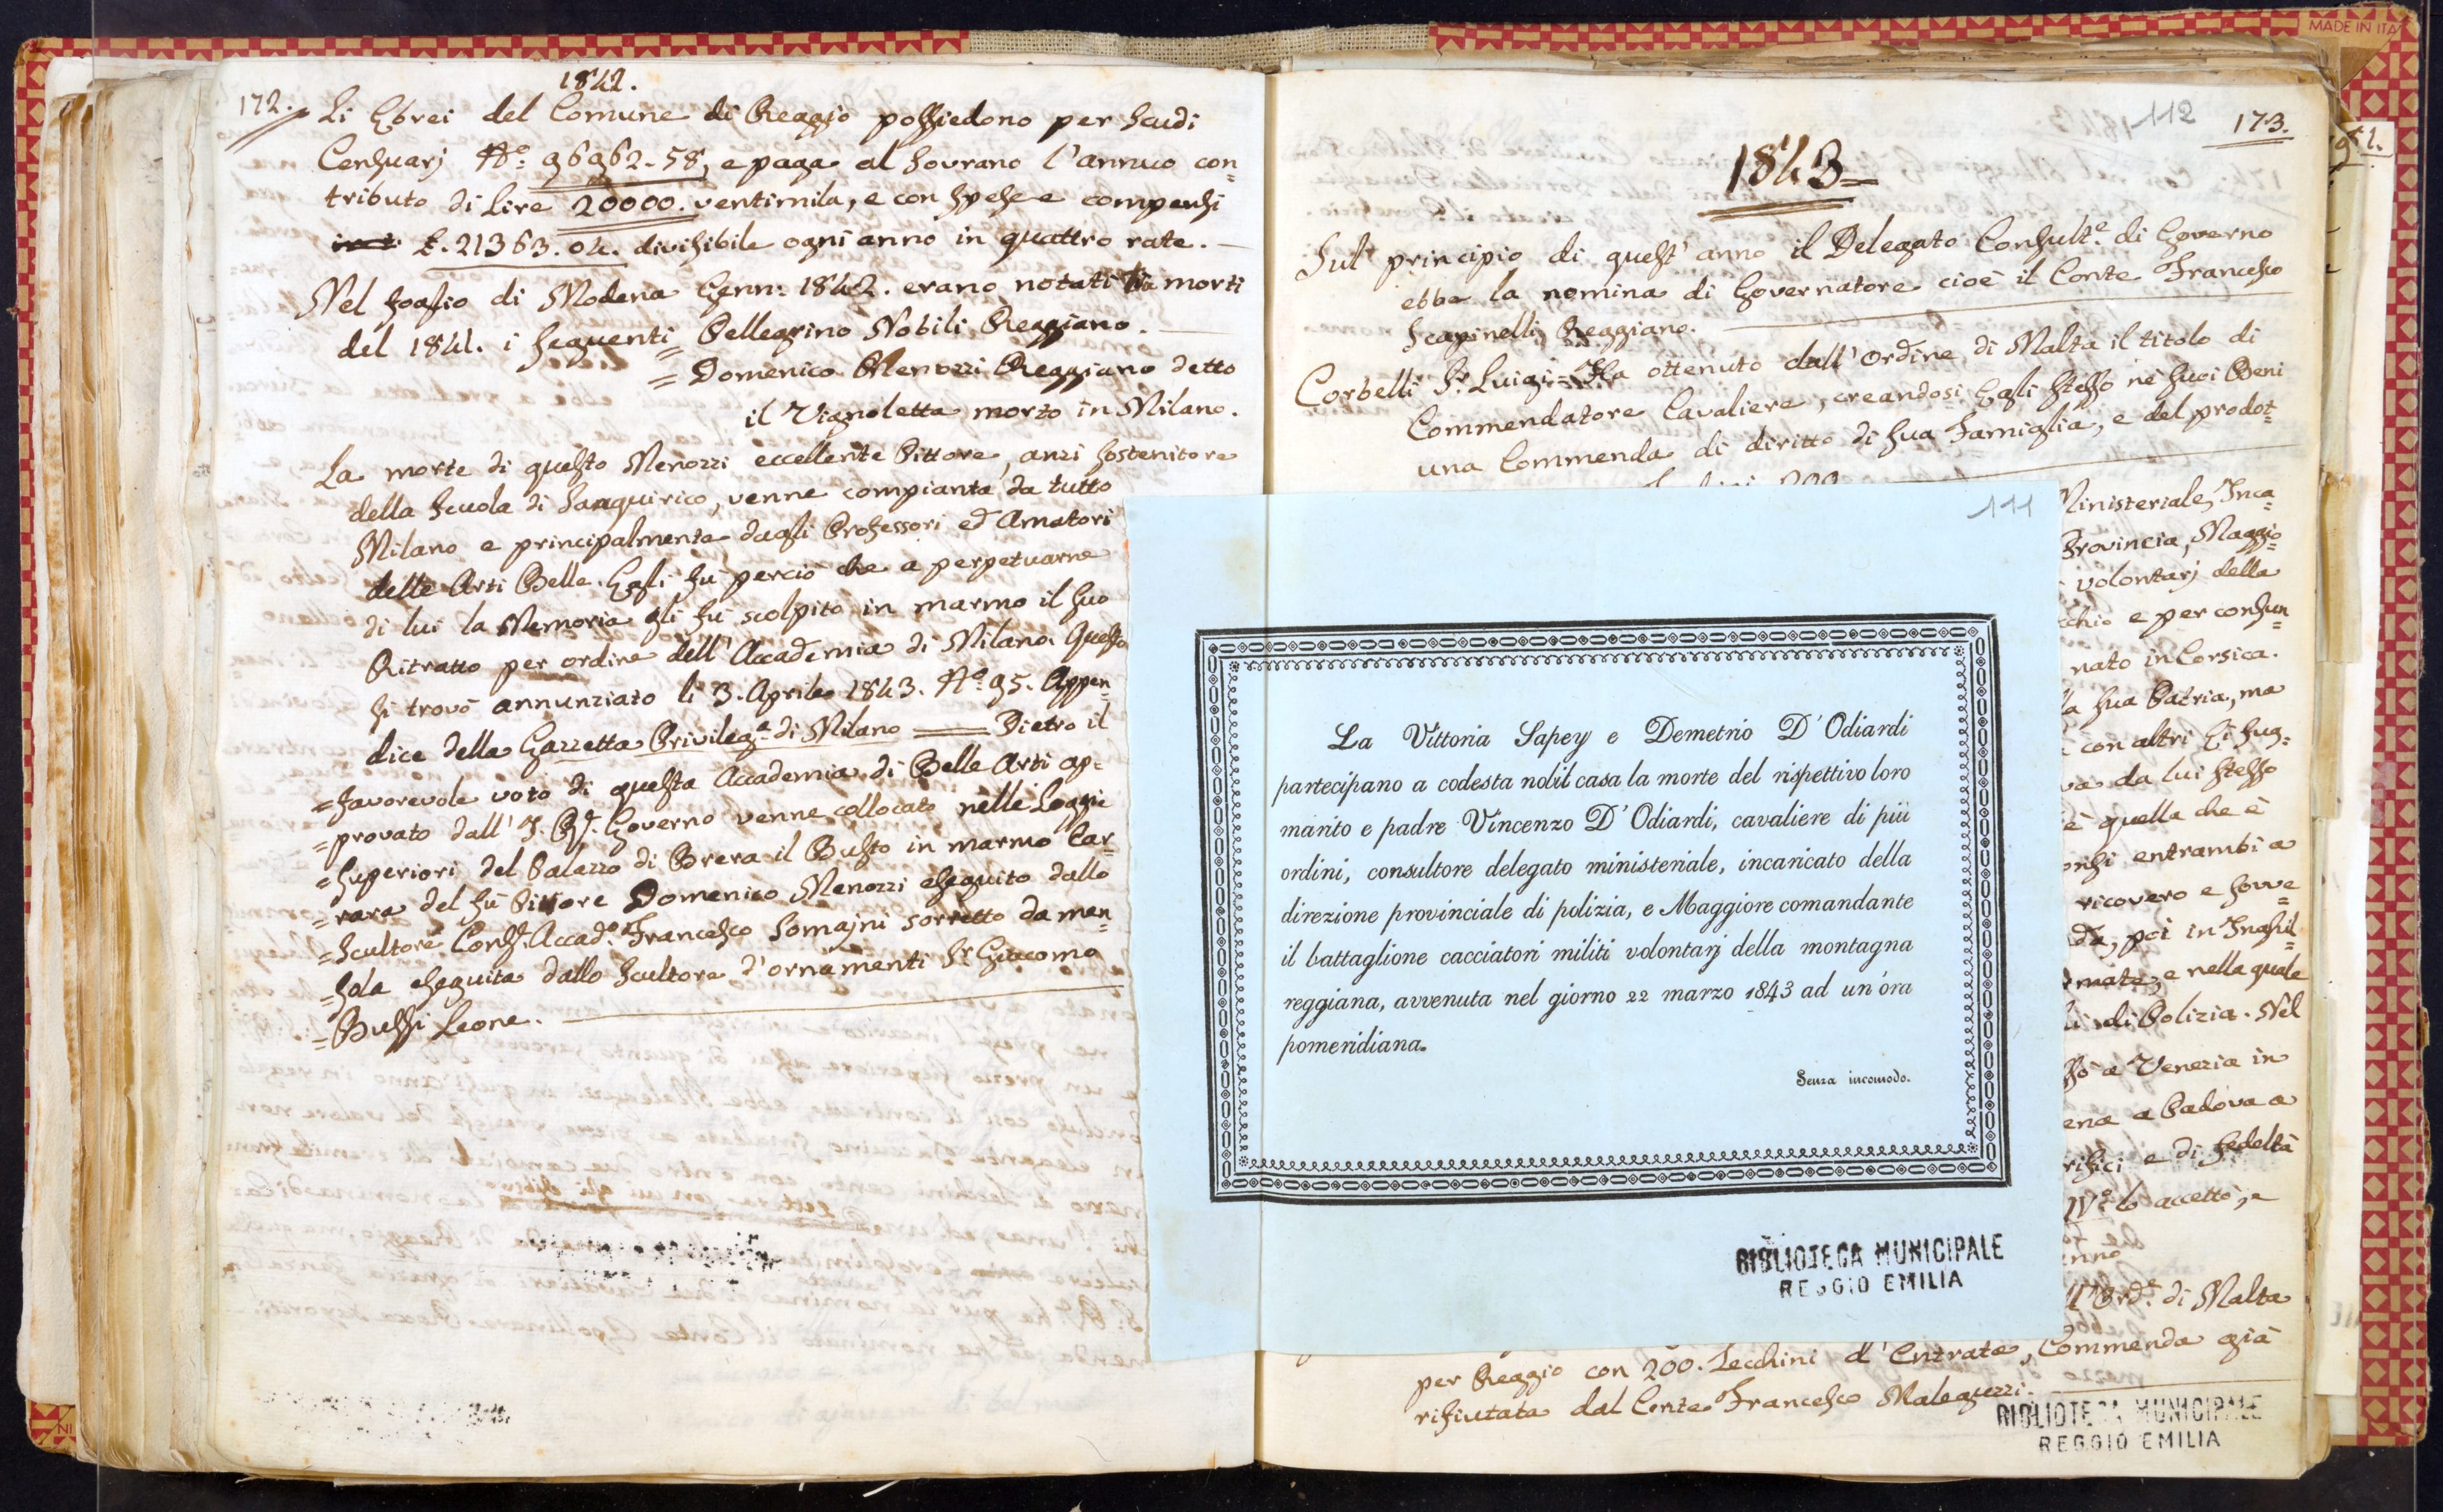 1842.
172. Li Ebrei del Comune di Reggio possiedono per Scudi
Censuarj N.º 96962-58, e paga al Sovrano l'annuo con=
tributo di Lire 20000. ventimila, e con spese e compensi
£. 21363.04. divisibile ogni anno in quattro rate.
Nel foglio di Modena Genn: 1842. erano notati tra morti
del 1841. i seguenti = Pellegrino Nobili Reggiano.
= Domenico Menozzi Reggiano detto
il Vignoletta morto in Milano.
La morte di questo Menozzi eccellente Pittore, anzi sostenitore
della Scuola di Sanquirico, venne compianta da tutto
Milano e principalmente dagli Professori ed Amatori
delle Arti Belle. Egli fù perciò che a perpetuarne
di lui la Memoria gli fù scolpito in marmo il suo
Ritratto per ordine dell'Accademia di Milano. Questo
si trovò annunziato li 3. Aprile 1843. N.º 95. Appen=
dice della Gazzetta Privileg.ª di Milano = Dietro il
= favorevole voto di questa Accademia di Belle Arti ap=
= provato dall'I. R. Governo venne collocato nelle Loggie
= Superiori del Palazzo di Brera il Busto in marmo Car=
= rara del fù Pittore Domenico Menozzi eseguito dallo
= Scultore Cons. Accad.º Francesco Somajni sorretto da men=
= sola eseguita dallo Scultore d'ornamenti Sr. Giacomo
= Bussi Leone.
112
173.
1843=
Sul principio di quest'anno il Delegato Consult.e di Governo
ebbe la nomina di Governatore cioè il Conte Francesco
Scapinelli Reggiano.
Corbelli Sr. Luigi = Ha ottenuto dall'Ordine di Malta il titolo di
Commendatore Cavaliere, creandosi Egli stesso ne' suoi Beni
una Commenda di diritto di sua Famiglia, e del prodot=
200
111
La Vittoria Sapey e Demetrio D'Odiardi
partecipano a codesta nobil casa la morte del rispettivo loro
marito e padre Vincenzo D'Odiardi, cavaliere di più
ordini, consultore delegato ministeriale, incaricato della
direzione provinciale di polizia, e Maggiore comandante
il battaglione cacciatori militi volontarj della montagna
reggiana, avvenuta nel giorno 22 marzo 1843 ad un'óra
pomeridiana.
Senza incomodo.
BIBLIOTECA MUNICIPALE
REGGIO EMILIA
Ministeriale, Inca=
Provincia, Maggio=
volontarj della
chio e per consun=
nato in Corsica.
la sua Patria, ma
con altri si sug=
va da lui stesso
è quella che è
entrambi a
ricovero e sovve=
da, poi in Inghil=
rmate, e nella quale
di Polizia. Nel
ssò a Venezia in
ena a Padova a
rifici e di fedeltà
IV.º lo accettò, e
anno
l'Ord.e di Malta
per Reggio con 200. Zecchini d'Entrata, Commenda già
rifiutata dal Conte Francesco Maleguzzi.
BIBLIOTECA MUNICIPALE
REGGIO EMILIA
MADE IN ITA